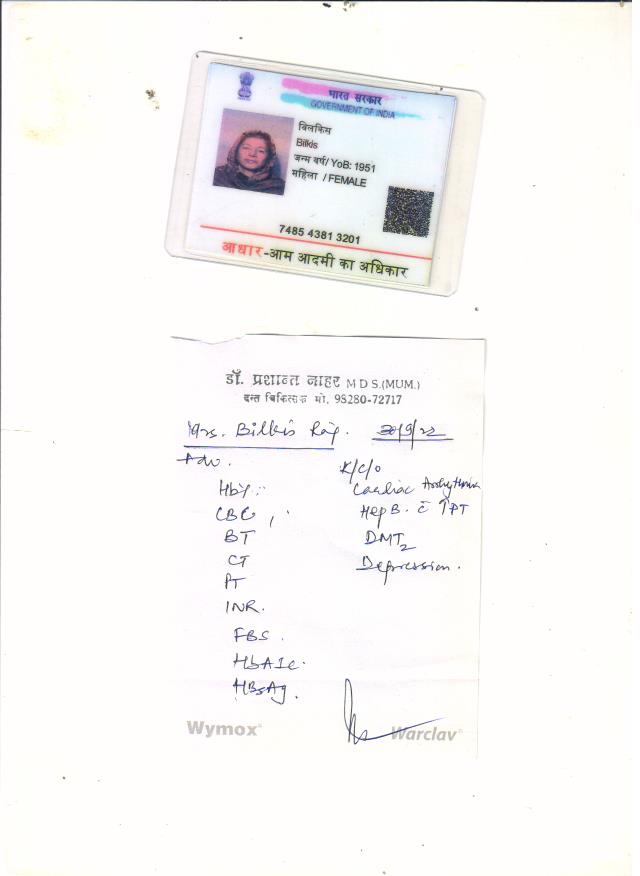 भारत सरकार
GOVERNMENT OF INDIA
बिलकिस
Bilkis
जन्म वर्ष / YoB: 1951
महिला / FEMALE
7485 4381 3201
आधार-आम आदमी का अधिकार
डॉ. प्रशान्त नाहर M D S.(MUM.)
दन्त चिकित्सक मो. 98280-72717
Mrs. Bilkis 30/9/22
Adv. K/C/O
Hb%. Cardiac Arrhythmia
CBC, Hep B. c̄ TPT
BT DMT2
CT Depression.
PT
INR.
FBS.
HbA1c.
HBsAg.
Wymox Warclav